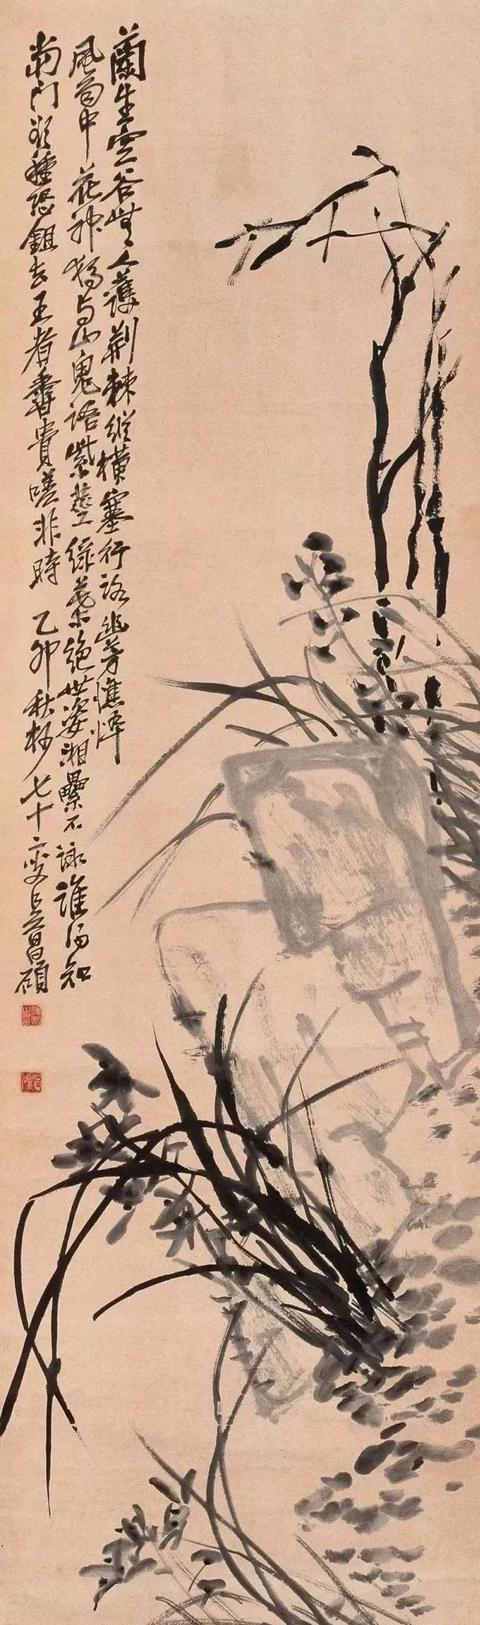 蘭生空谷無人護荆棘縱橫塞行路幽芳憔悴
風雨中花神獨与山鬼語紫莖綠葉絕世姿湘纍不詠誰得知
當門欲種恐鉏去王者香貴嗟非時 乙卯秋杪七十二叟吳昌碩